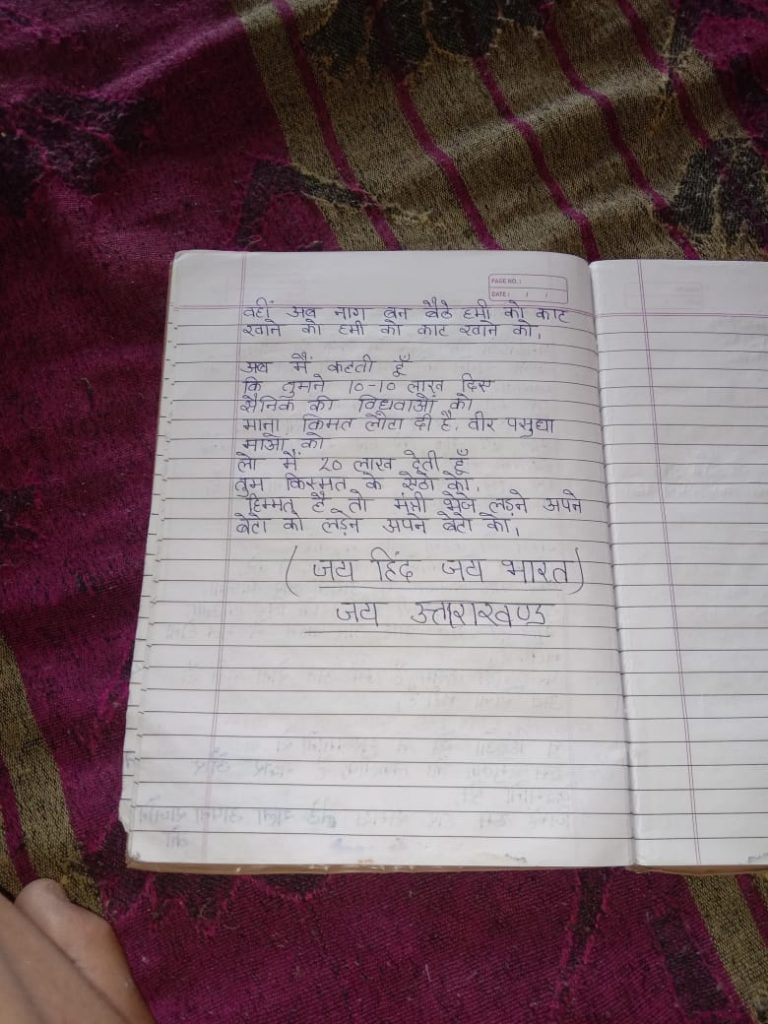 PAGE NO. :
DATE : / /
वहीं अब नाग बन बैठे हमी को काट
खाने को हमी को काट खाने को,
अब मैं कहती हूँ
कि तुमने 10-10 लाख दिए
सैनिक की विधवाओं को
माना किमत लौटा दी है. वीर पसुधा
माओ को
लो मैं 20 लाख देती हूँ
तुम किस्मत के सेठो को,
हिम्मत है तो मंत्री भेजे लड़ने अपने
बेटो को लड़ेन अपन बेटो को,
(जय हिंद जय भारत)
जय उत्तराखण्ड